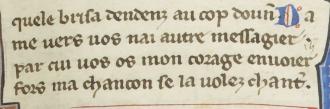 quele brisa dendenz au cop doun̄ Da
me uers uos nai autre messagier
par cui uos os mon corage enuoier
fors ma chancon se la uolez chant᷑.